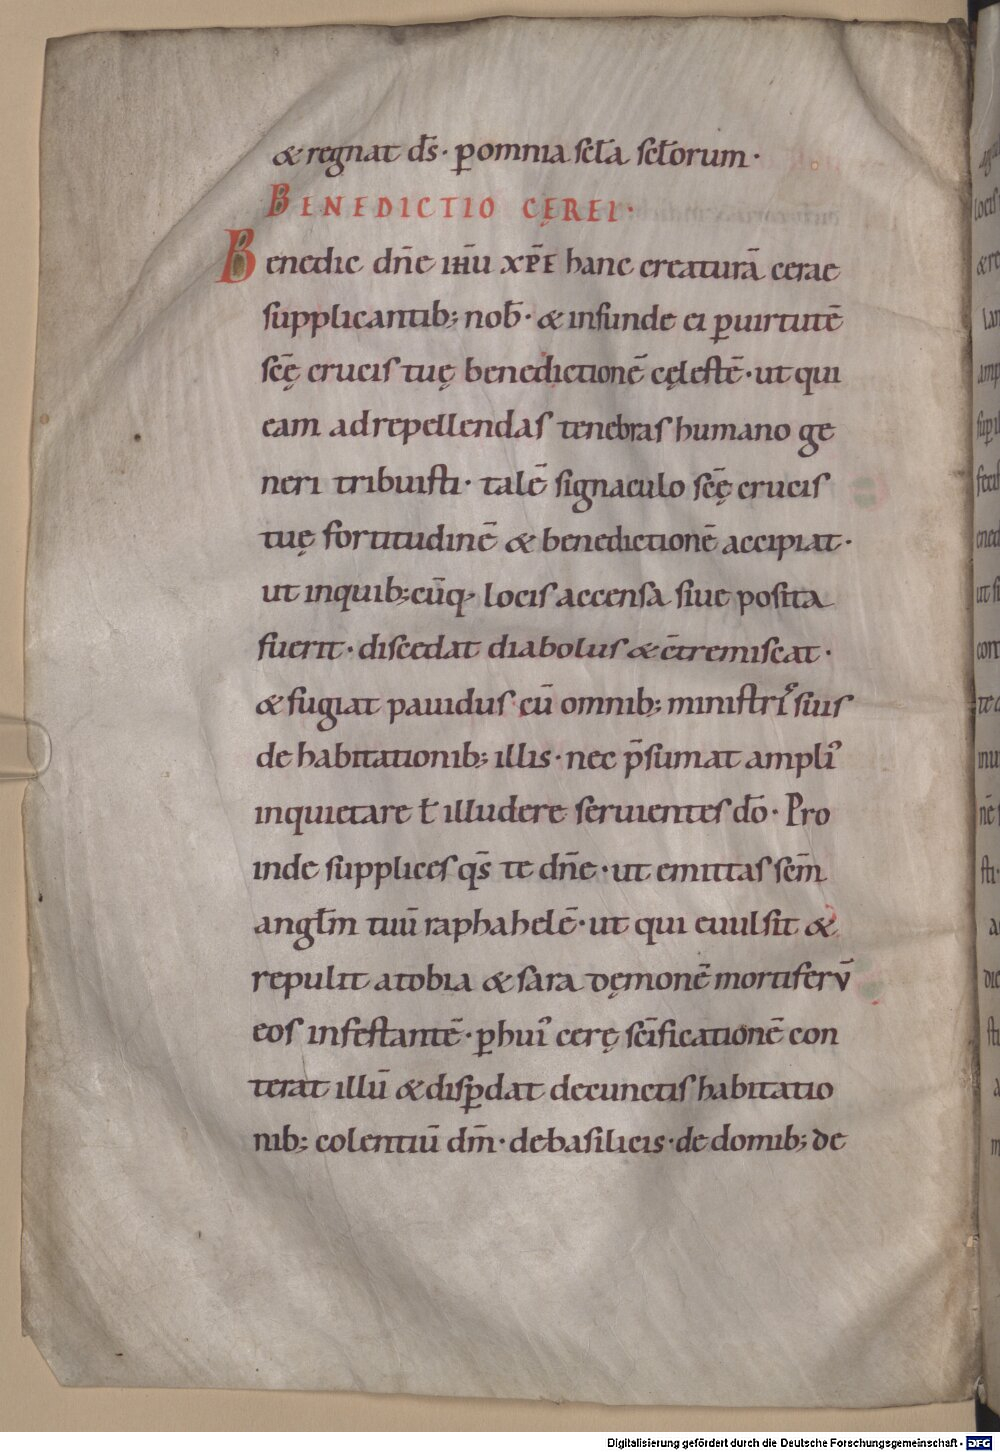 & regnat d̄s · ꝑ omnia sc̄la sc̄lorum ·
BENEDICTIO CĘREI ·
Benedic dn̄e ιħu xp̄e hanc creaturā cerae
supplicantib; nob̄ · & infunde ei ꝑ uirtutē
sc̄ę crucis tuę benedictionē cęlestē · ut qui
eam ad repellendas tenebras humano ge
neri tribuisti · talē signaculo sc̄ę crucis
tuę fortitudinē & benedictionē accipiat ·
ut in quib; cūq· locis accensa siue posita
fuerit · discedat diabolus & c̄tremiscat ·
& fugiat pauidus cū omnib; ministris suis
de habitationib; illis · nec p̄sumat ampli᾿
inquietare ł illudere seruientes dō · Pro
inde supplices qs̄ te dn̄e · ut emittas sc̄m
angl̄m tuū raphahelē · ut qui euulsit &
repulit a tobia & sara dęmonē mortiferū
eos infestantē · ꝑ hui᾿ cerę sc̄ificationē con
terat illū & disꝑdat de cunctis habitatio
nib; colentiū dm̄ · de basilicis · de domib; de
Digitalisierung gefördert durch die Deutsche Forschungsgemeinschaft - DFG